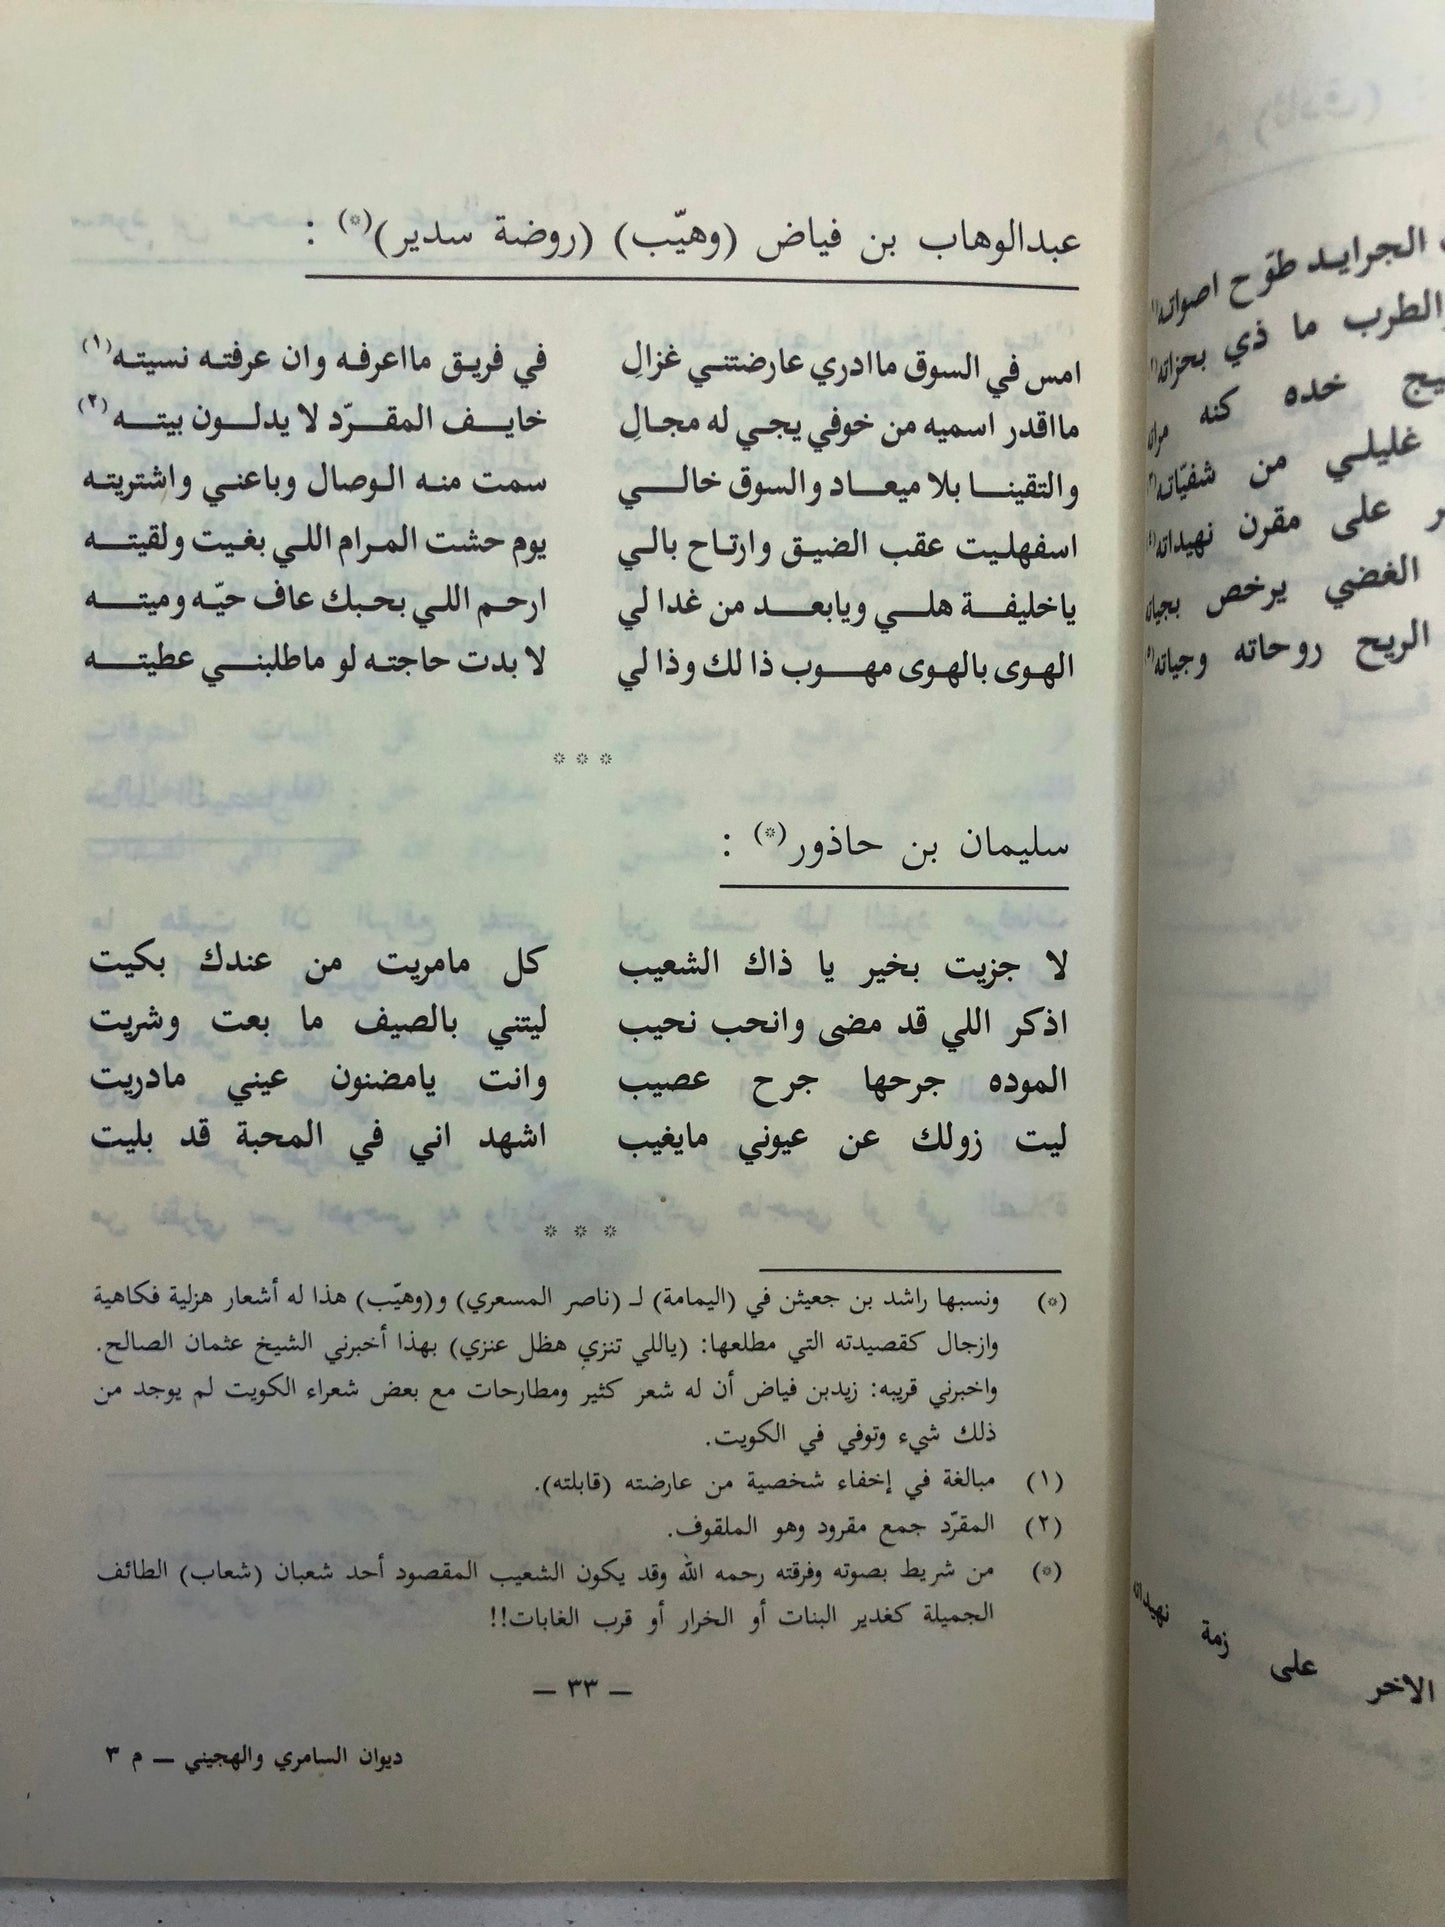 عبدالوهاب بن فياض (وهيّب) (روضة سدير)(*) :
امس في السوق ماادري عارضتني غزالِ في فريق مااعرفه وان عرفته نسيته(١)
مااقدر اسميه من خوفي يجي له مجالِ خايف المقرّد لا يدلون بيته(٢)
والتقينا بلا ميعاد والسوق خالي سمت منه الوصال وباعني واشتريته
اسفهليت عقب الضيق وارتاح بالي يوم حشت المرام اللي بغيت ولقيته
ياخليفة هلي ويابعد من غدا لي ارحم اللي بحبك عاف حيّه وميته
الهوى بالهوى مهوب ذا لك وذا لي لا بدت حاجته لو ماطلبني عطيته
* * *
سليمان بن حاذور(*) :
لا جزيت بخير يا ذاك الشعيب كل مامريت من عندك بكيت
اذكر اللي قد مضى وانحب نحيب ليتني بالصيف ما بعت وشريت
الموده جرحها جرح عصيب وانت يامضنون عيني مادريت
ليت زولك عن عيوني مايغيب اشهد اني في المحبة قد بليت
* * *
(*) ونسبها راشد بن جعيثن في (اليمامة) لـ (ناصر المسعري) و(وهيّب) هذا له أشعار هزلية فكاهية
وازجال كقصيدته التي مطلعها: (ياللي تنزي هظل عنزي) بهذا أخبرني الشيخ عثمان الصالح.
واخبرني قريبه: زيدبن فياض أن له شعر كثير ومطارحات مع بعض شعراء الكويت لم يوجد من
ذلك شيء وتوفي في الكويت.
(١) مبالغة في إخفاء شخصية من عارضته (قابلته).
(٢) المقرّد جمع مقرود وهو الملقوف.
(*) من شريط بصوته وفرقته رحمه الله وقد يكون الشعيب المقصود أحد شعبان (شعاب) الطائف
الجميلة كغدير البنات أو الخرار أو قرب الغابات!!
— ٣٣ —
ديوان السامري والهجيني — م ٣
الجرايد طوّح اصواته
الطرب ما ذي بحزاته
خده كنه
غليلي من شفيّاته
على مقرن نهيداته
الغضي يرخص بجياته
الريح روحاته وجياته
الاخر على زمة نهيداته